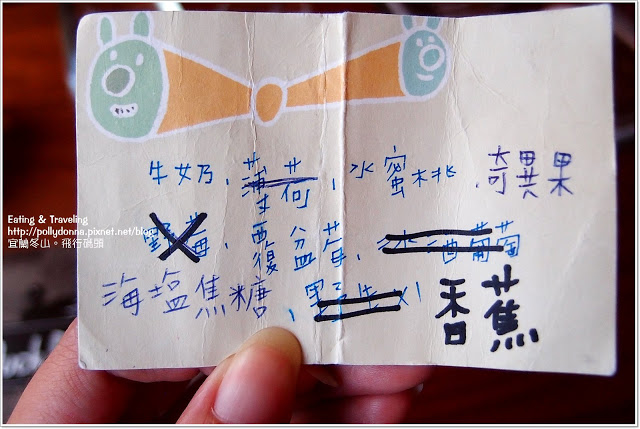 牛奶,薄荷,水蜜桃,奇異果
野莓,覆盆莓,冰酒葡萄
海塩焦糖,
香蕉
Eating & Traveling
http://pollydonna.pixnet.net/blog
宜蘭冬山。飛行碼頭